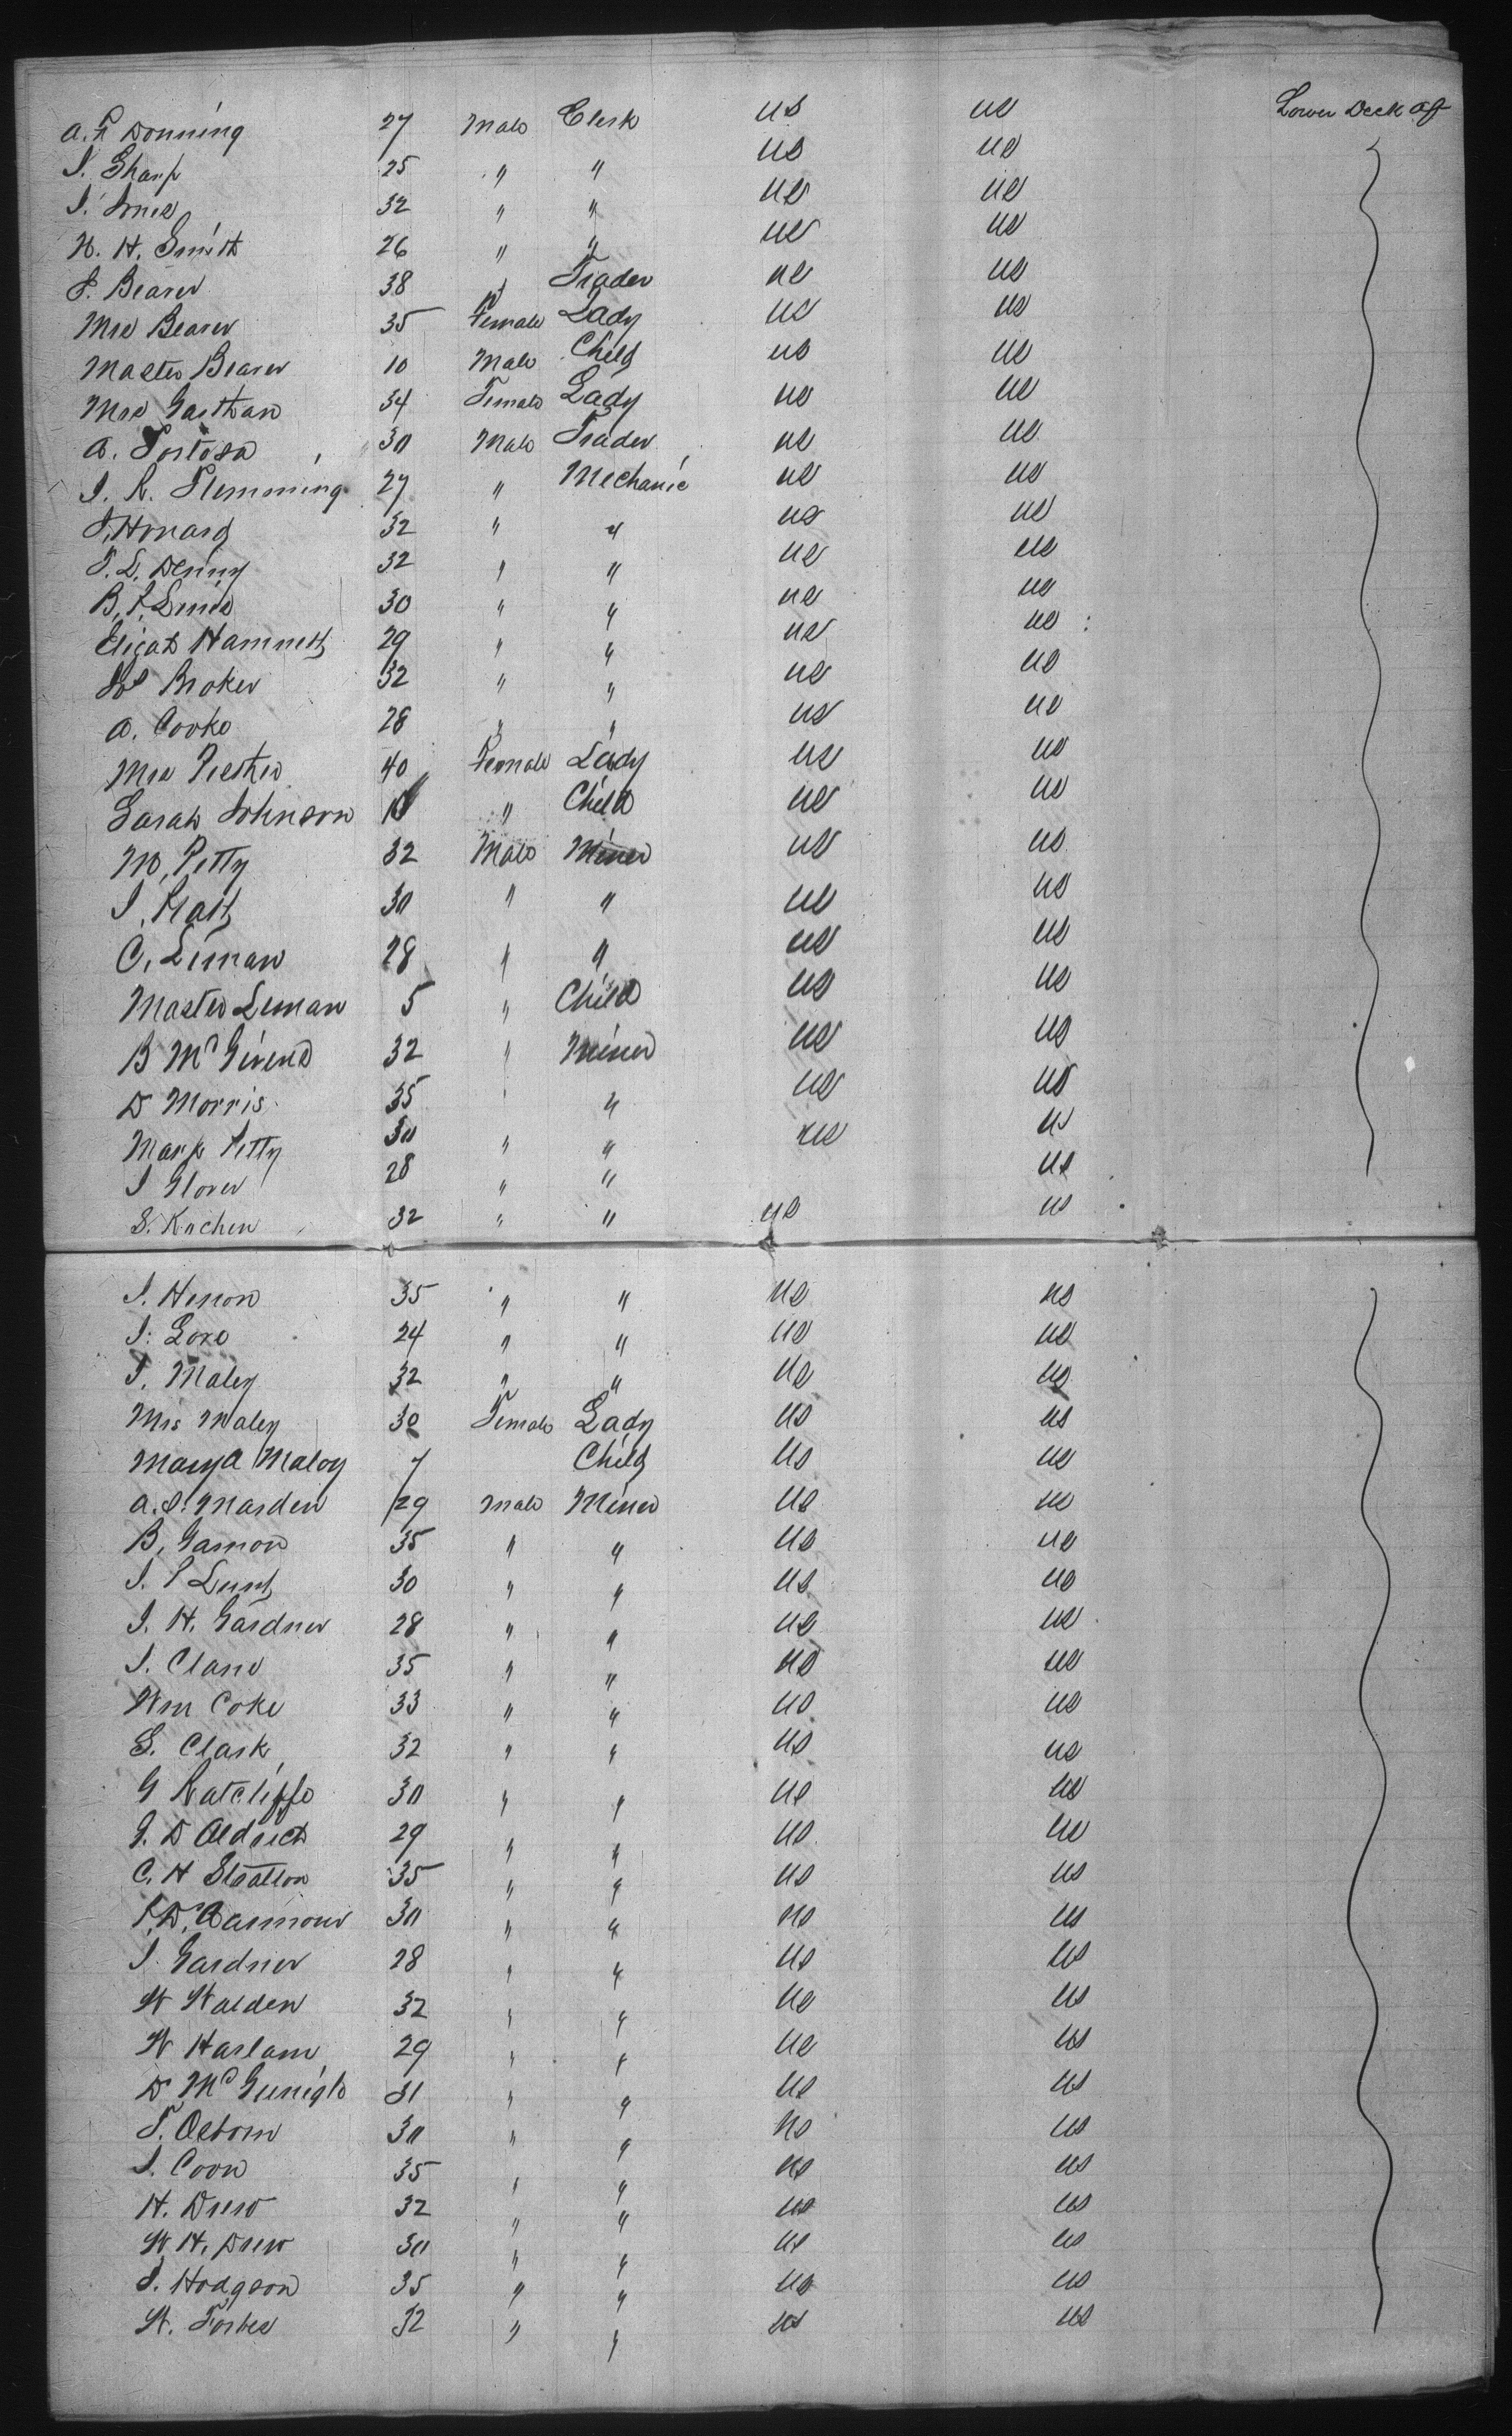 A. F. Donning 27 Male Clerk US US Lower Deck Aft
J. Sharp 25 " " US US
J. Jones 32 " " US US
N. H. Smith 26 " " US US
J. Beaver 38 " Trader US US
Mrs Beaver 35 Female Lady US US
Master Beaver 10 Male Child US US
Mrs Garthan 34 Female Lady US US
A. Tortosa 30 Male Trader US US
J. R. Flemming 27 " Mechanic US US
J. Howard 32 " " US US
T. L. Denny 32 " " US US
B. F. Lewis 30 " " US US
Elijah Hammett 29 " " US US
Broker 32 " " US US
A. Cooke 28 " " US US
Mrs 40 Female Lady US US
Sarah Johnson " Child US US
M. Petty 32 Male Miner US US
J. Platt 30 " " US US
C. Leman 28 " " US US
Master Leman 5 " Child US US
B McGivens 32 " Miner US US
D Morris 35 " US US
Mark Petty 30 " " US US
J Glover 28 " " US
S. Kachen 32 " " US US
J. Henon 35 " " US US
J. Lord 24 " " US US
T. Maley 32 " " US US
Mrs Maley 30 Female Lady US US
Mary A Maloy 7 Child US US
A. S. Marden 29 Male Miner US US
B. Gamon 35 " " US US
J. P Lunt 30 " " US US
J. H. Gardner 28 " " US US
J. Clane 35 " " US US
Wm Coke 33 " " US US
S. Clark 32 " " US US
G Ratcliffe 30 " " US US
G. D Aldrich 29 " " US US
C. H Stratton 35 " " US US
30 " " US US
J. Gardner 28 " " US US
W Walden 32 " " US US
W Haslam 29 " " US US
D McGunigle 31 " " US US
T. Osborn 30 " " US US
J. Coon 35 " " US US
H. Drew 32 " " US US
W. H. Drew 30 " " US US
J. Hodgson 35 " " US US
W. Forbes 32 " " US US